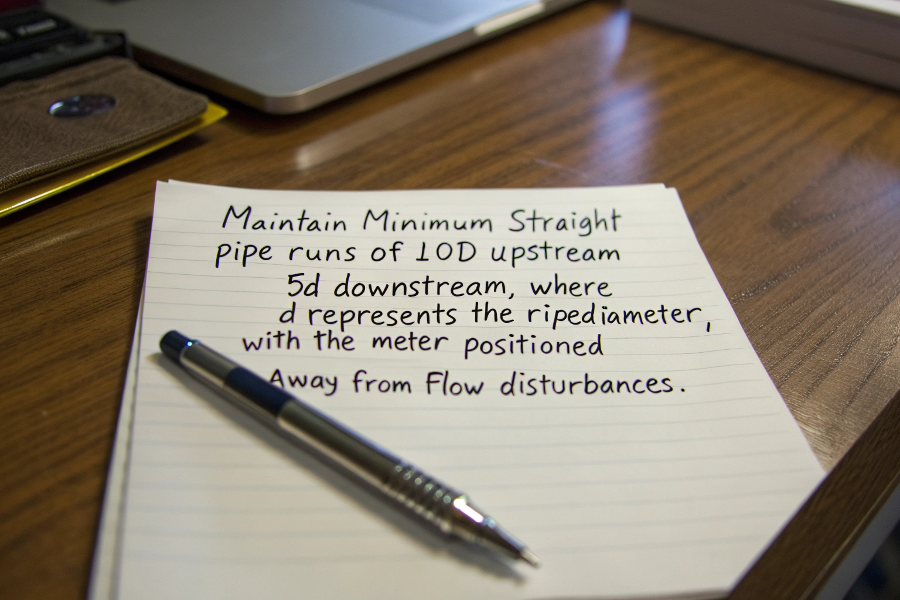 Maintain Minimum Straight
pipe runs of 10D upstream
5d downstream, where
d represents the ripediameter,
with the meter positioned
Away from Flow disturbances.